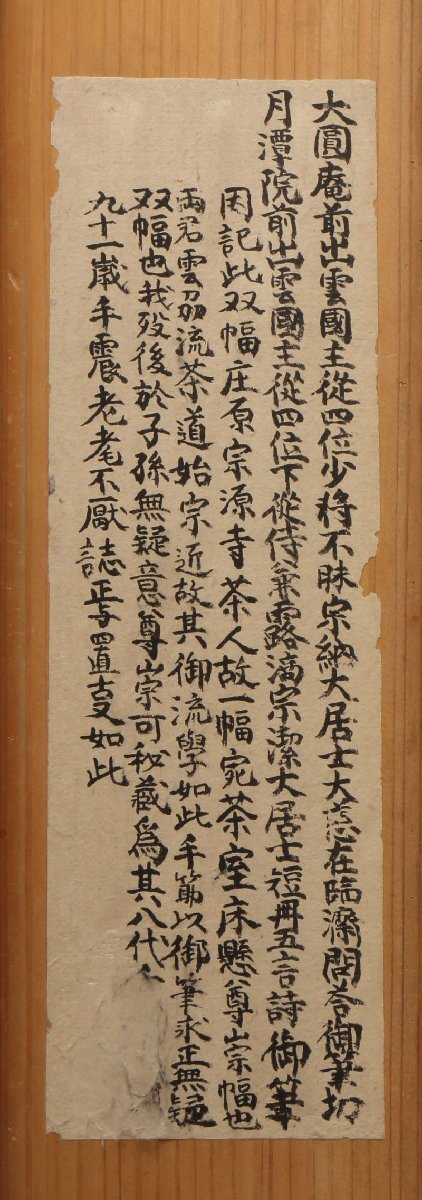 大圓庵前出雲國主從四位少将不昧宗納大居士大慈在臨濟問答御筆切
月潭院前出雲國主從四位下從侍兼露滴宗潔大居士短冊五言詩御筆
因記此双幅庄原宗源寺茶人故一幅宛茶室床懸尊崇幅也
両君雲刕流茶道始宗近故其御流學如此手節以御筆求正無疑
双幅也我歿後於子孫無疑意尊崇可秘藏為其八代
九十一歳手震老耄不厭誌正与置支如此